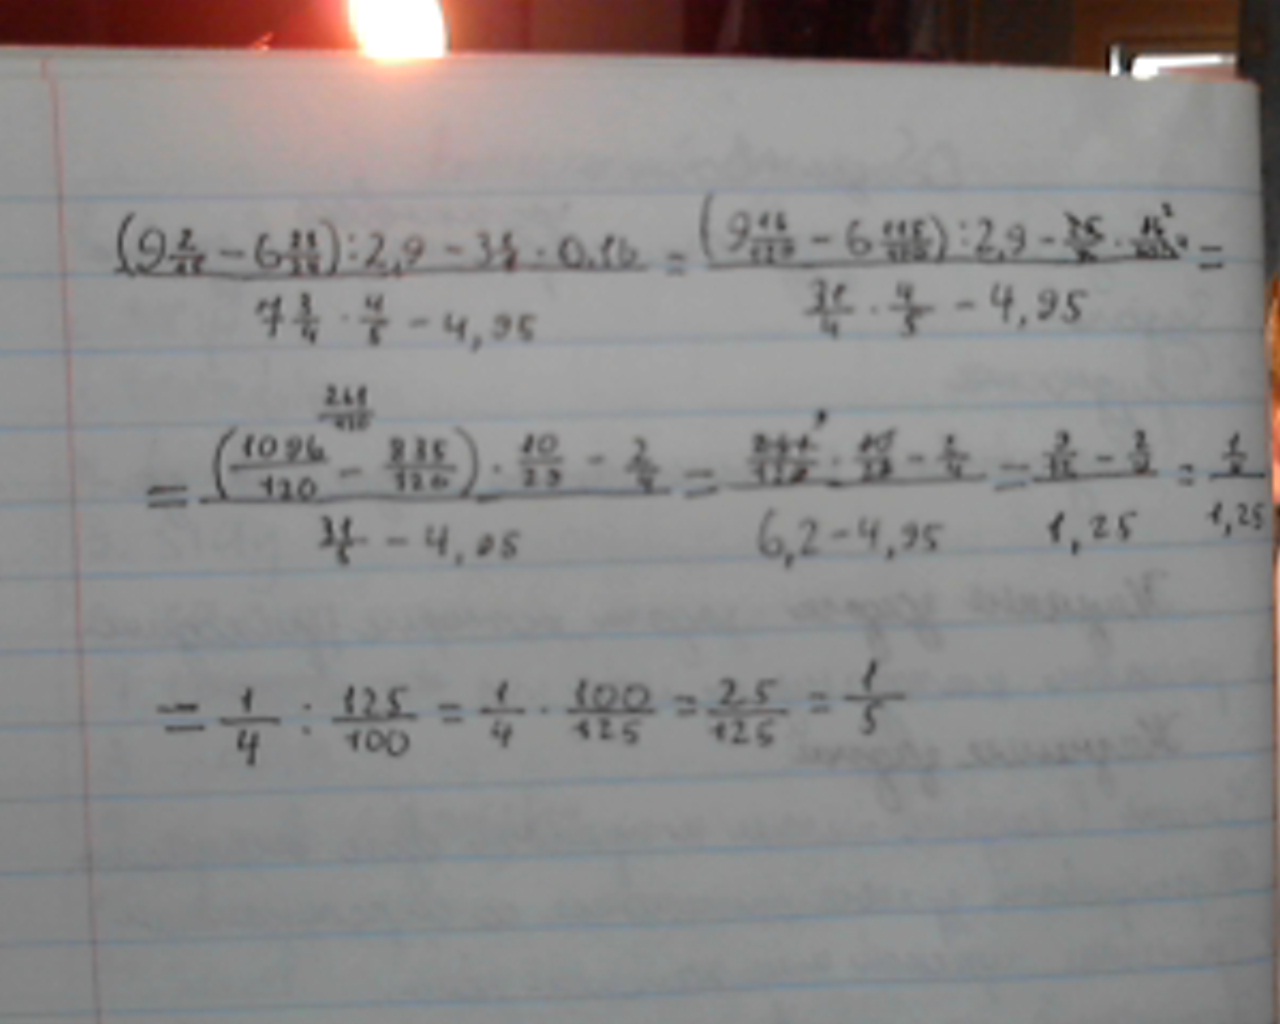 (9 2/15 − 6 23/24) : 2,9 − 3 1/8 · 0,16 / 7 3/4 · 4/5 − 4,95 = (9 16/120 − 6 115/120) : 2,9 − 25/8 · 16/100 / 31/4 · 4/5 − 4,95 =
261/120
= (1096/120 − 835/120) · 10/29 − 2/4 / 31/5 − 4,95 = 261/120 · 10/29 − 2/4 / 6,2 − 4,95 = / 1,25 = / 1,25
= 1/4 : 125/100 = 1/4 · 100/125 = 25/125 = 1/5